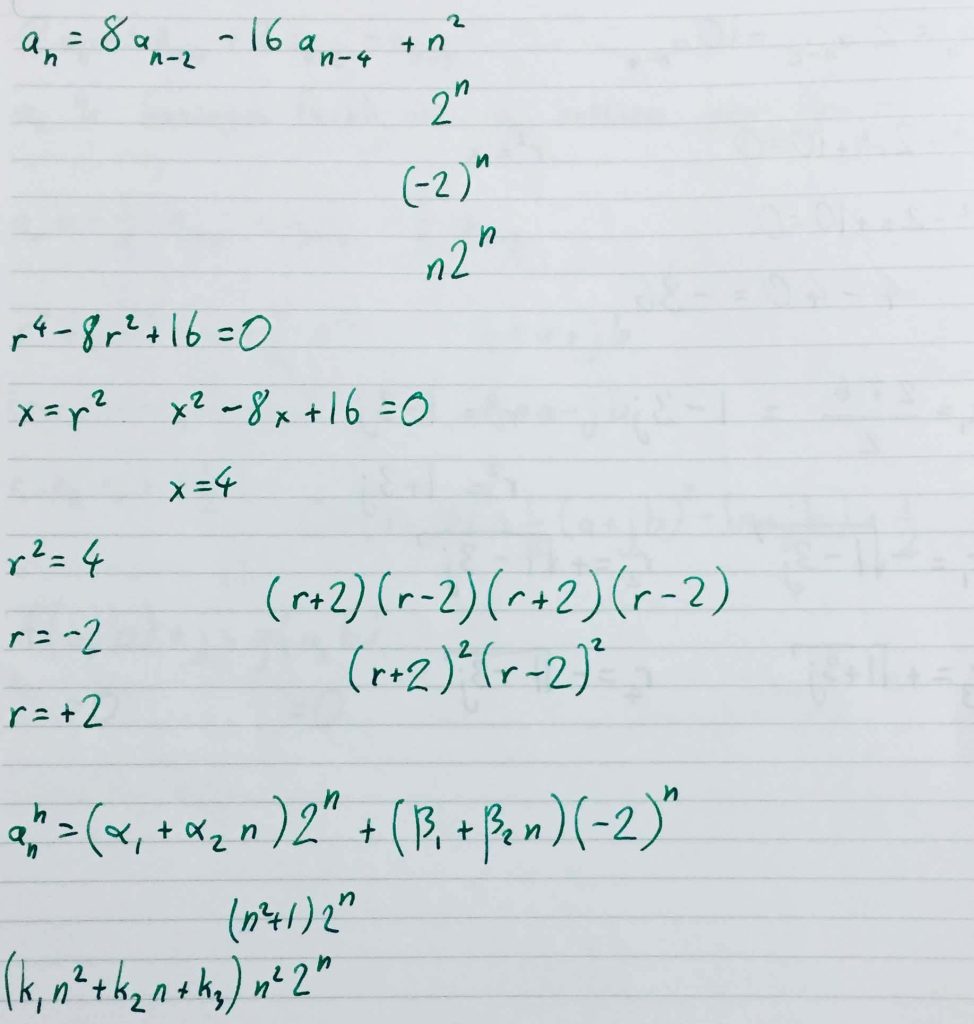 aₙ = 8aₙ₋₂ - 16aₙ₋₄ + n²
2ⁿ
(-2)ⁿ
n2ⁿ
r⁴ - 8r² + 16 = 0
x = r² x² - 8x + 16 = 0
x = 4
r² = 4
(r+2)(r-2)(r+2)(r-2)
r = -2
(r+2)²(r-2)²
r = +2
aₙʰ = (α₁ + α₂n)2ⁿ + (β₁ + β₂n)(-2)ⁿ
(n²+1)2ⁿ
(k₁n² + k₂n + k₃)n²2ⁿ